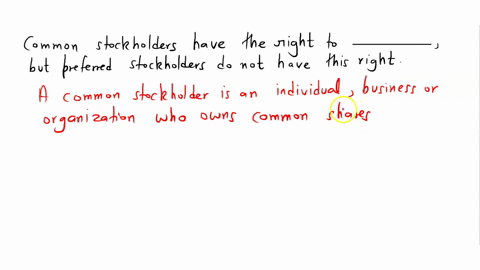 Common stockholders have the right to __________,
but preferred stockholders do not have this right.
A common stockholder is an individual, business or
organization who owns common shares